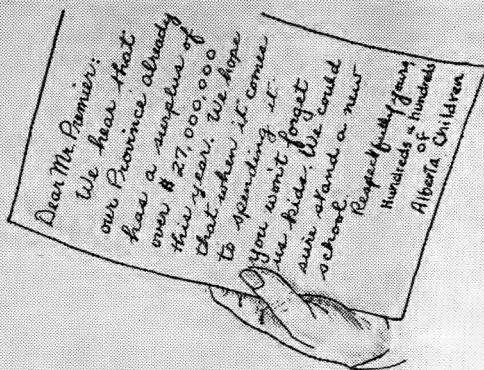 Dear Mr. Premier:
We hear that
our Province already
has a surplus of
over $ 27,000,000
this year. We hope
that when it comes
to spending it
you won't forget
us kids. We could
sure stand a new
school.
Respectfully yours,
Hundreds & hundreds
of
Alberta Children